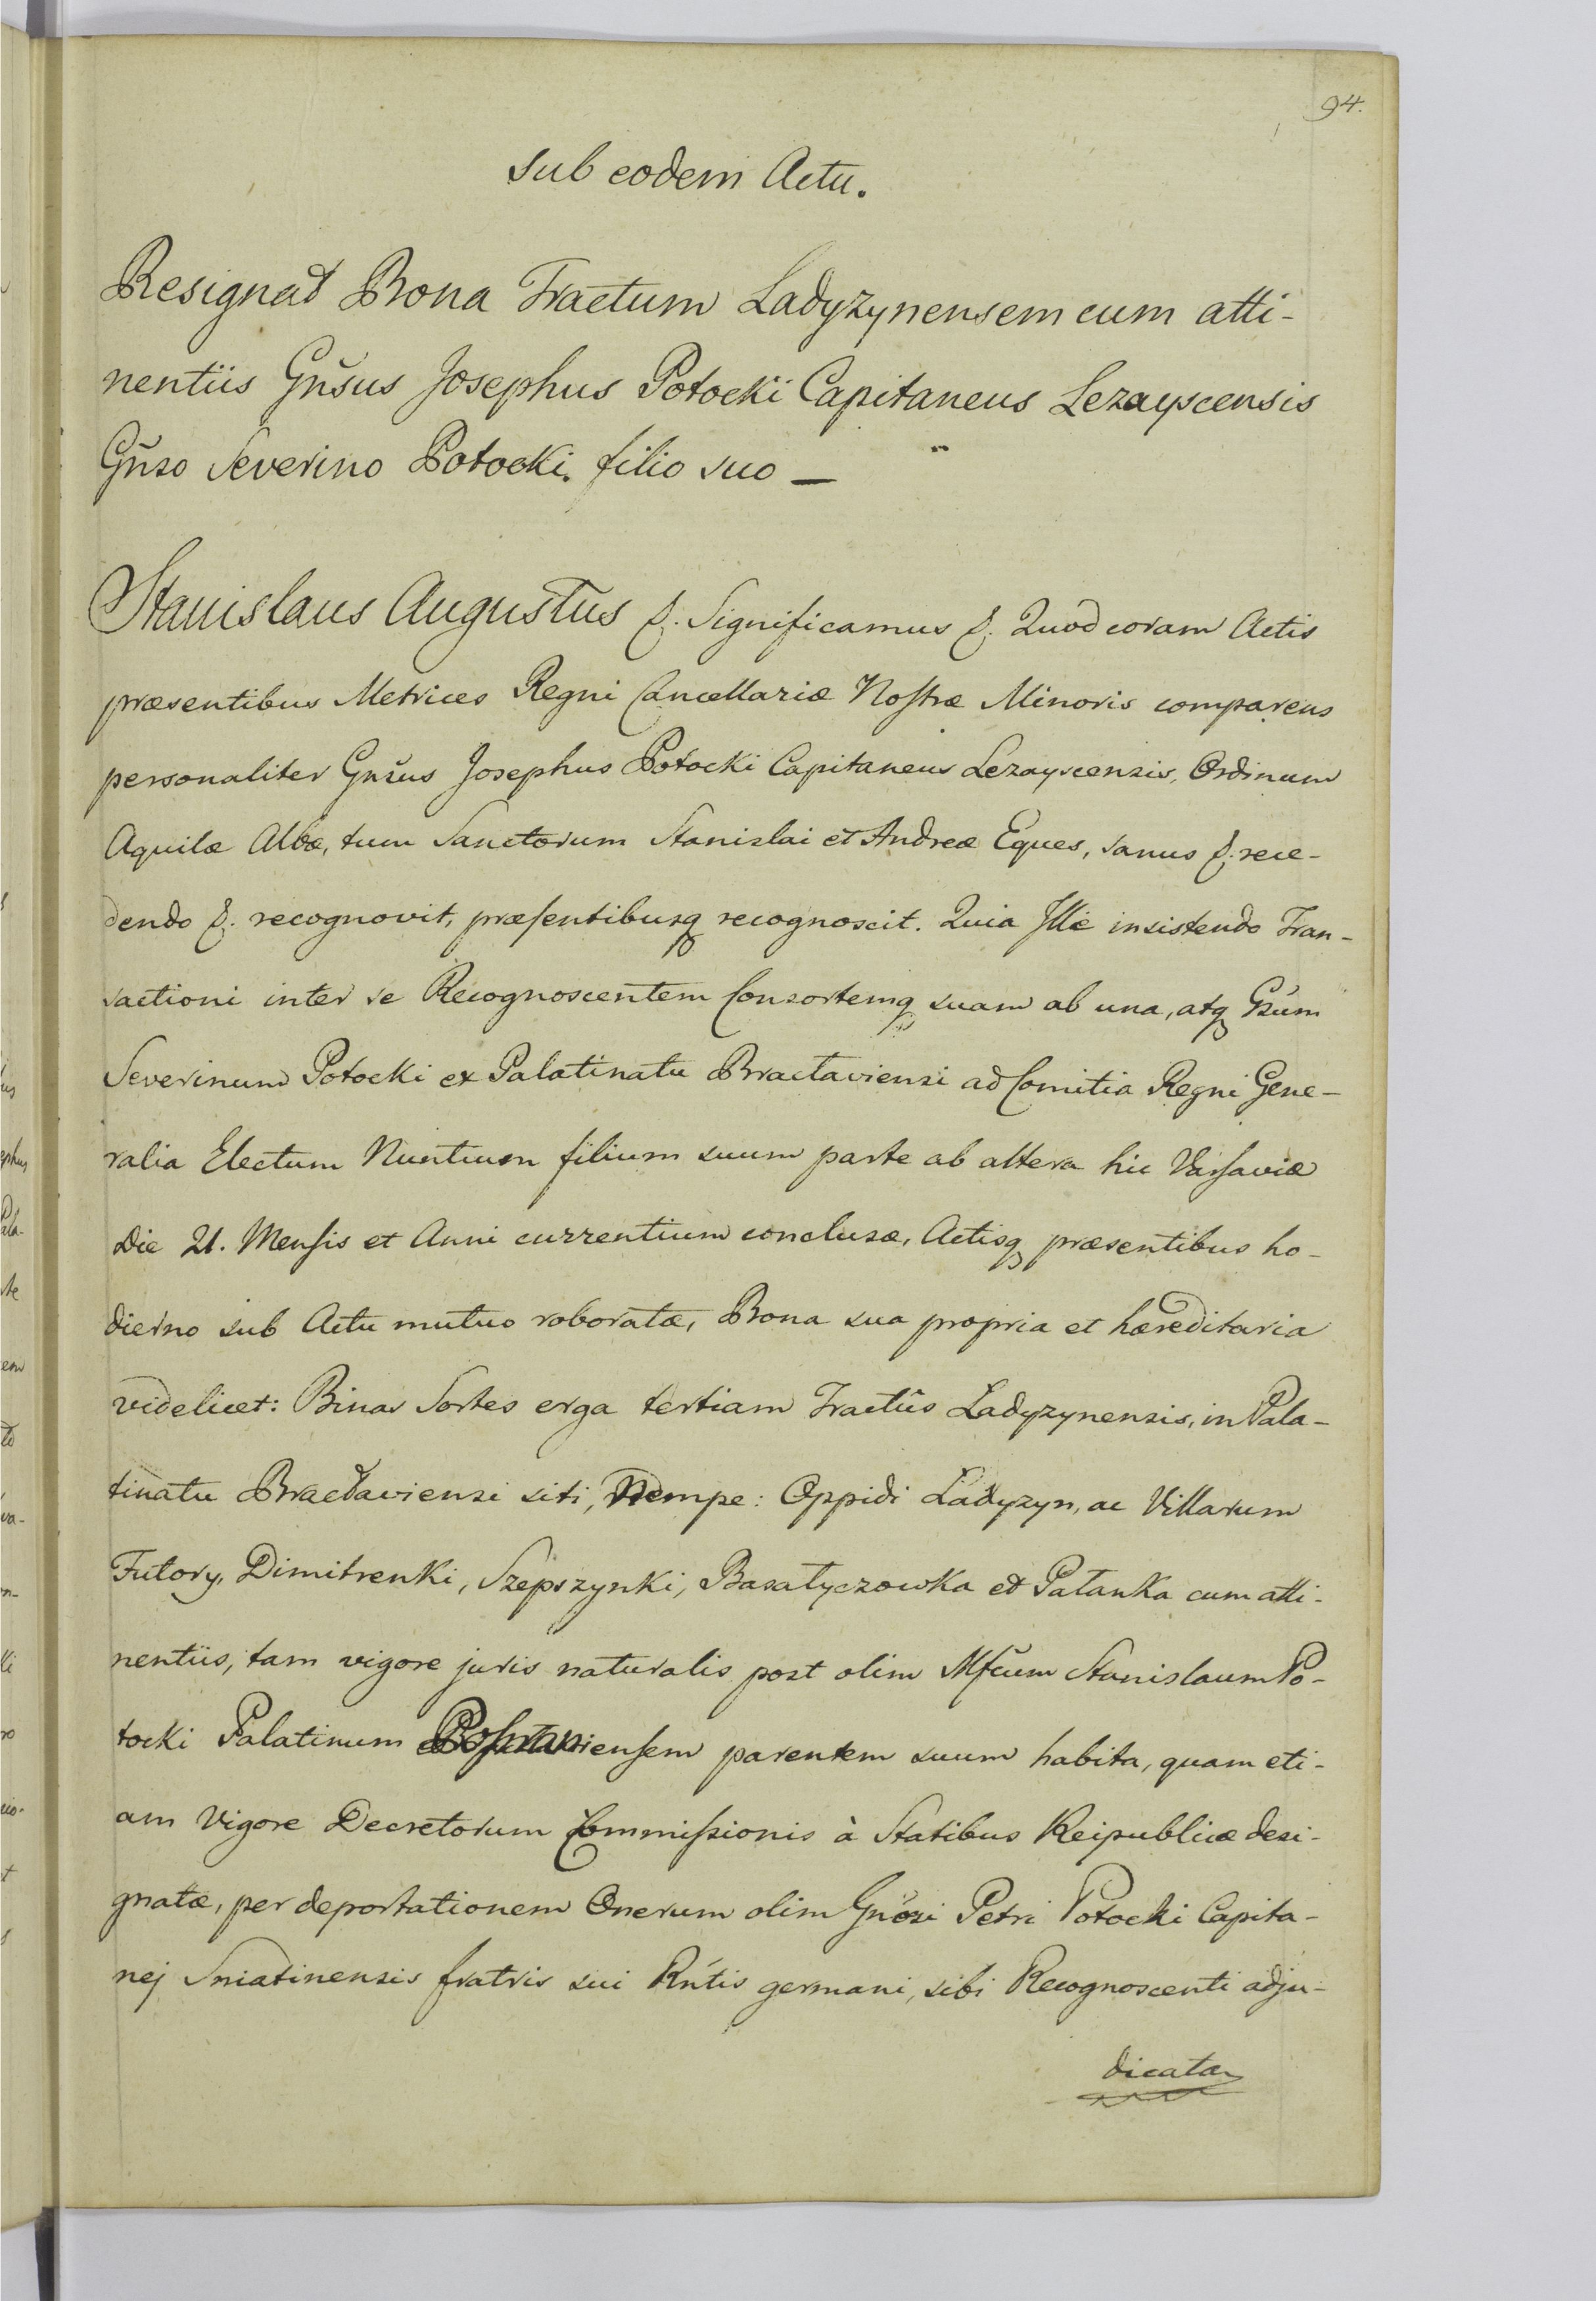 94.
Sub eodem Actu.
Resignat Bona Tractum Ladyzynensem cum atti-
nentiis Gnŝus Josephus Potocki Capitaneus Lezayscensis
Gñso Severino Potocki filio suo —
Stanislaus Augustus &. Significamus &. Quod coram Actis
præsentibus Metrices Regni Cancellariæ Nostræ Minoris comparens
personaliter Gnŝus Josephus Potocki Capitaneus Lezayscensis, Ordinum
Aquilæ Albæ, tum Sanctorum Stanislai et Andreæ Eques, sanus &. rece-
dendo &. recognovit, præsentibusq recognoscit. Quia Ille insistendo Tran-
sactioni inter se Recognoscentem Consortemq suam ab una, atq Gsum
Severinum Potocki ex Palatinatu Bractaviensi ad Comitia Regni Gene-
ralia Electum Nuntium filium suum parte ab altera hic Varsaviæ
Die 21. Mensis et Anni currentium conclusæ, Actisq præsentibus ho-
dierno sub Actu mutuo roboratæ, Bona sua propria et hæreditaria
videlicet: Binas Sortes erga tertiam Tractûs Ladyzynensis, in Pala-
tinatu Bracłaviensi siti, Nempe: Oppidi Ladyzyn, ac Villarum
Futory, Dimitrenki, Szepszynki, Basatyczowka et Pałanka cum atti-
nentiis, tam vigore juris naturalis post olim Mfcum Stanislaum Po-
tocki Palatinum Posnaniensem parentem suum habita, quam eti-
am Vigore Decretorum Commissionis à Statibus Reipublicæ desi-
gnatæ, per deportationem Onerum olim Gnŏsi Petri Potocki Capita-
nej Sniatinensis fratris sui Rńtis germani, sibi Recognoscenti adju-
dicata